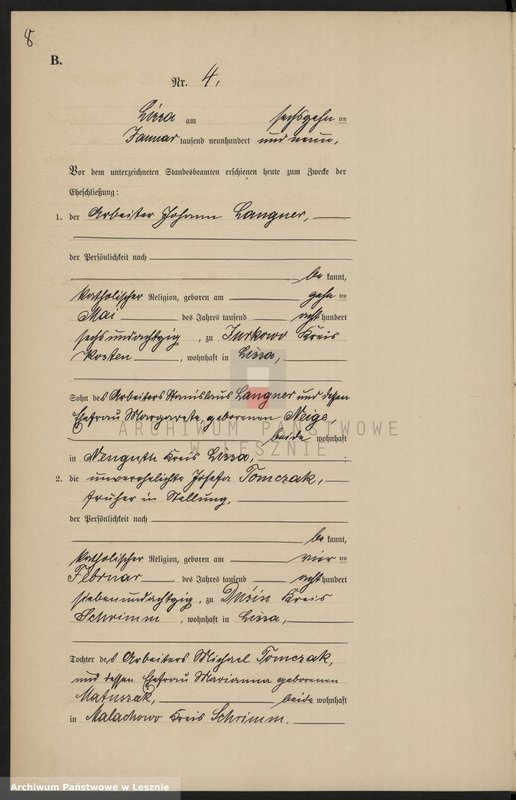 8
B.
Nr. 4,
Lissa am sechszehn ten
Januar tausend neunhundert und neun,
Vor dem unterzeichneten Standesbeamten erschienen heute zum Zwecke der
Eheschließung:
1. der Arbeiter Johann Langner,
der Persönlichkeit nach
be kannt,
katholischer Religion, geboren am zehn ten
Mai des Jahres tausend acht hundert
sechsundachtzig, zu Jurkowo Kreis
Kosten, wohnhaft in Lissa,
Sohn des Arbeiters Stanislaus Langner und dessen
Ehefrau Margarete, geborenen
beide wohnhaft
in Kreis Lissa,
2. die unverehelichte Josefa Tomczak,
früher in Stellung,
der Persönlichkeit nach
be kannt,
katholischer Religion, geboren am vier ten
Februar des Jahres tausend acht hundert
siebenundachtzig, zu Dusin Kreis
Schrimm, wohnhaft in Lissa,
Tochter des Arbeiters Michael Tomczak,
und dessen Ehefrau Marianna geborenen
Matuszak, beide wohnhaft
in Malachowo Kreis Schrimm.
ARCHIWUM PAŃSTWOWE
W LESZNIE
Archiwum Państwowe w Lesznie